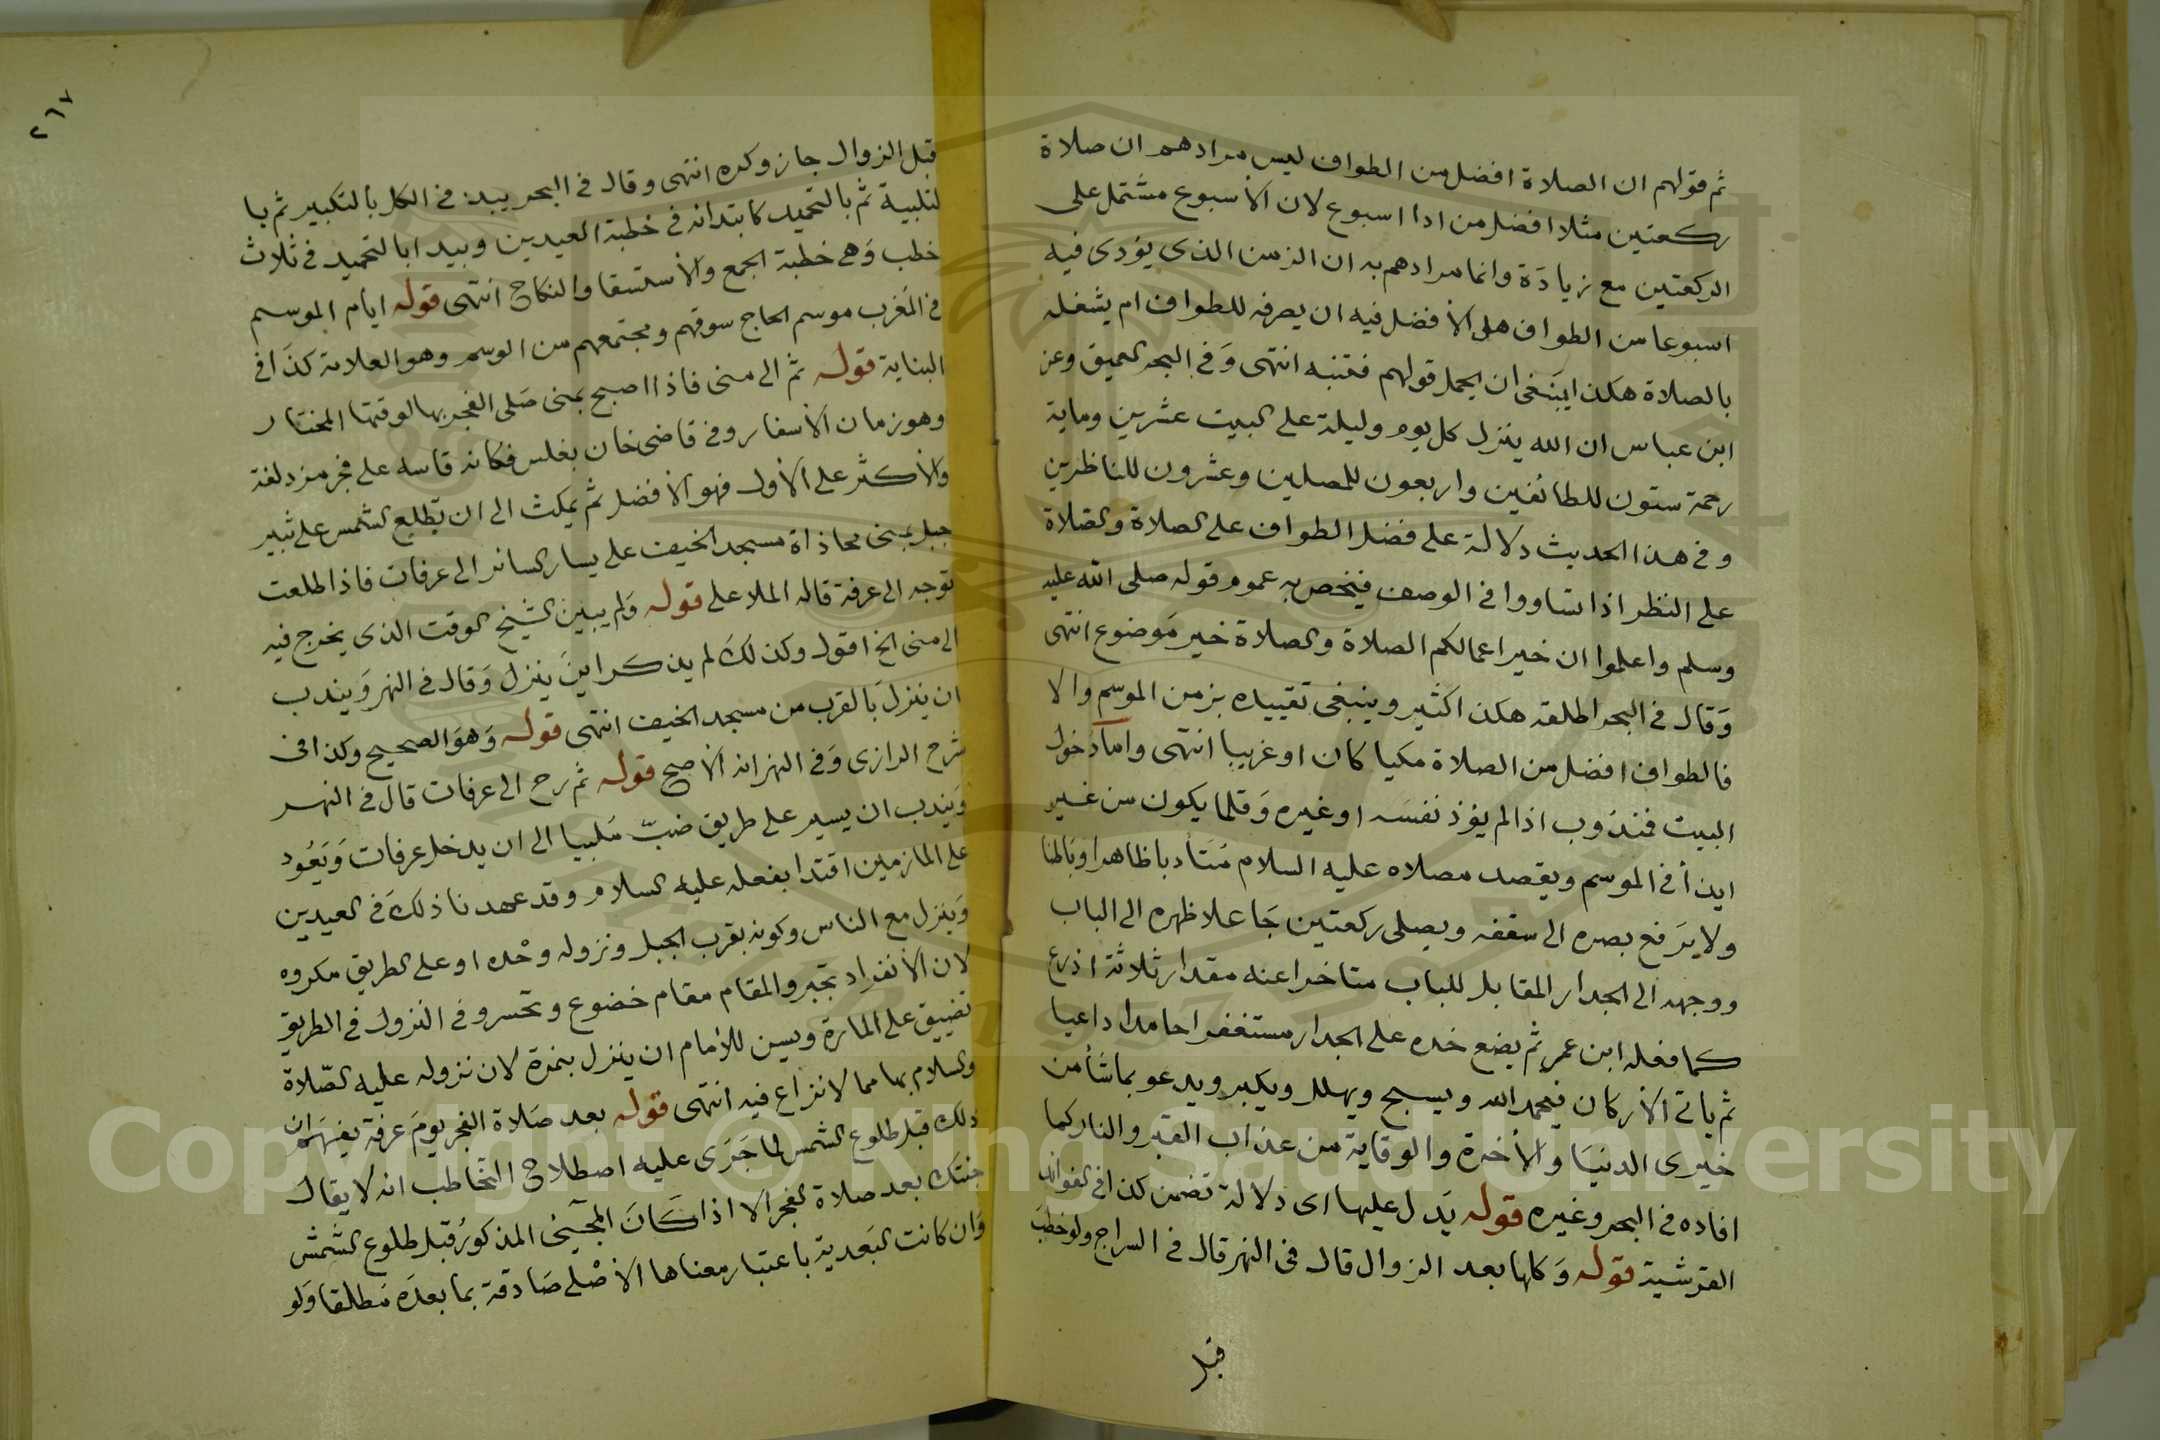 ثم قولهم ان الصلاة افضل من الطواف ليس مرادهم ان صلاة
ركعتين مثلا افضل من ادا اسبوع لان الأسبوع مشتمل على
الركعتين مع زيادة وانما مرادهم به ان الزمن الذى يؤدى فيه
اسبوعا من الطواف هل الأفضل فيه ان يصرفه للطواف ام يشغله
بالصلاة هكذا ينبغى ان يحمل قولهم فتنبه انتهى وفى البحر العميق وعن
ابن عباس ان الله ينزل كل يوم وليلة على البيت عشرين وماية
رحمة ستون للطائفين واربعون للمصلين وعشرون للناظرين
وفى هذا الحديث دلالة على فضل الطواف على الصلاة والصلاة
على النظر اذا تساووا فى الوصف فيخص به عموم قوله صلى الله عليه
وسلم واعلموا ان خير اعمالكم الصلاة والصلاة خير موضوع انتهى
وقال فى البحر اطلقه هكذا كثير وينبغى تقييده بزمن الموسم والا
فالطواف افضل من الصلاة مكيا كان او غريبا انتهى واما دخول
البيت فمندوب اذا لم يؤذ نفسه او غيره وقلما يكون من غير
ايذأ فى الموسم ويقصد مصلاه عليه السلام متأدبا ظاهرا وباطنا
ولا يرفع بصره الى سقفه ويصلى ركعتين جاعلا ظهره الى الباب
ووجهه الى الجدار المقابل للباب متاخرا عنه مقدار ثلاثة اذرع
كما فعله ابن عمر ثم يضع خده على الجدار مستغفرا حامدا داعيا
ثم ياتى الأركان فيحمد الله ويسبح ويهلل ويكبر ويدعو بما شأ من
خيرى الدنيا والأخرة والوقاية من عذاب القبر والنار كما
افاده فى البحر وغيره قوله يدل عليها اى دلالة تضمن كذا فى الفوائد
القرشية قوله وكلها بعد الزوال قال فى النهر قال فى السراج ولو خطب
قبل
٢٦٧
قبل الزوال جاز وكره انتهى وقال فى البحر يبد فى الكل بالتكبير ثم با
لتلبية ثم بالتحميد كابتدائه فى خطبة العيدين ويبدا بالتحميد فى ثلاث
خطب وهى خطبة الجمع والأستسقا والنكاح انتهى قوله ايام الموسم
فى المغرب موسم الحاج سوقهم ومجتمعهم من الوسم وهو العلامة كذا فى
البناية قوله ثم الى منى فاذا اصبح بمنى صلى الفجر بها لوقتها المختار
وهو زمان الأسفار وفى قاضى خان بغلس فكانه قاسه على فجر مزدلفة
والأكثر على الأول فهو الأفضل ثم يمكث الى ان تطلع الشمس على ثبير
جبل بمنى محاذاة مسجد الخيف على يسار السائر الى عرفات فاذا طلعت
توجه الى عرفة قاله الملا على قوله ولم يبين الشيخ الوقت الذى يخرج فيه
الى منى الخ اقول وكذلك لم يذكر اين ينزل وقال فى النهر ويندب
ان ينزل بالقرب من مسجد الخيف انتهى قوله وهو الصحيح وكذا فى
شرح الرازى وفى النهر انه الأصح قوله ثم رح الى عرفات قال فى النهر
ويندب ان يسير على طريق ضب ملبيا الى ان يدخل عرفات ويعود
على المازمين اقتدا بفعله عليه السلام وقد عهدنا ذلك فى العيدين
وينزل مع الناس وكونه بقرب الجبل ونزوله وحده او على الطريق مكروه
لان الأنفراد تجبر والمقام مقام خضوع وتحسر وفى النزول فى الطريق
تضييق على المارة ويسن للأمام ان ينزل بنمرة لان نزوله عليه الصلاة
والسلام بها مما لا نزاع فيه انتهى قوله بعد صلاة الفجر يوم عرفة يفهم ان
ذلك قبل طلوع الشمس لما جرى عليه اصطلاح التخاطب انه لا يقال
جئتك بعد صلاة الفجر الا اذا كان المجيئ المذكور قبل طلوع الشمس
وان كانت البعدية باعتبار معناها الأصلى صادقة بما بعده مطلقا ولو
Copyright © King Saud University